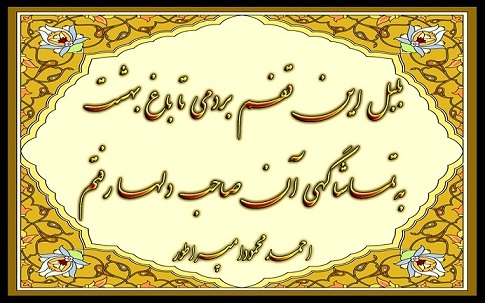 بلبل این قفسم بردمی تا باغ بهشت
به تماشاگهی آن صاحب دلها رفتم
احمد محمود امپراطور